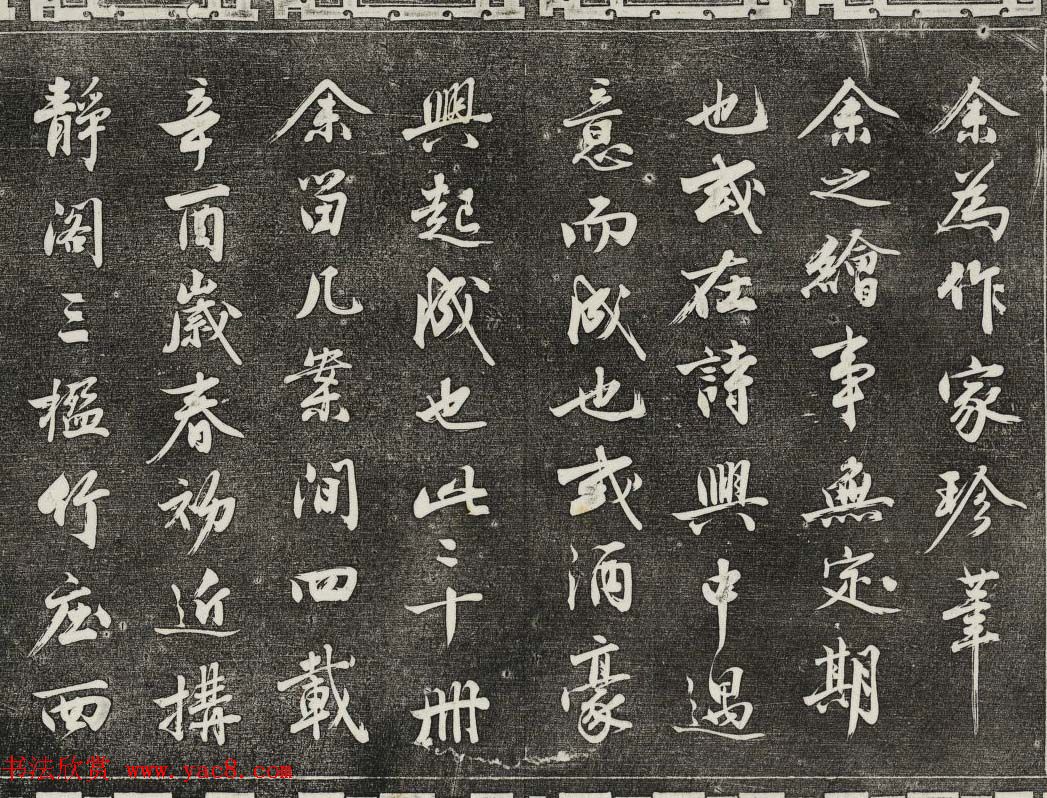 余為作家珍筆
余之繪事無定期
也或在詩興中遇
意而成也或酒豪
興起成也此二十冊
余留几案間四載
辛酉歲春初近搆
靜閣三楹竹庄西
书法欣赏 www.yac8.com